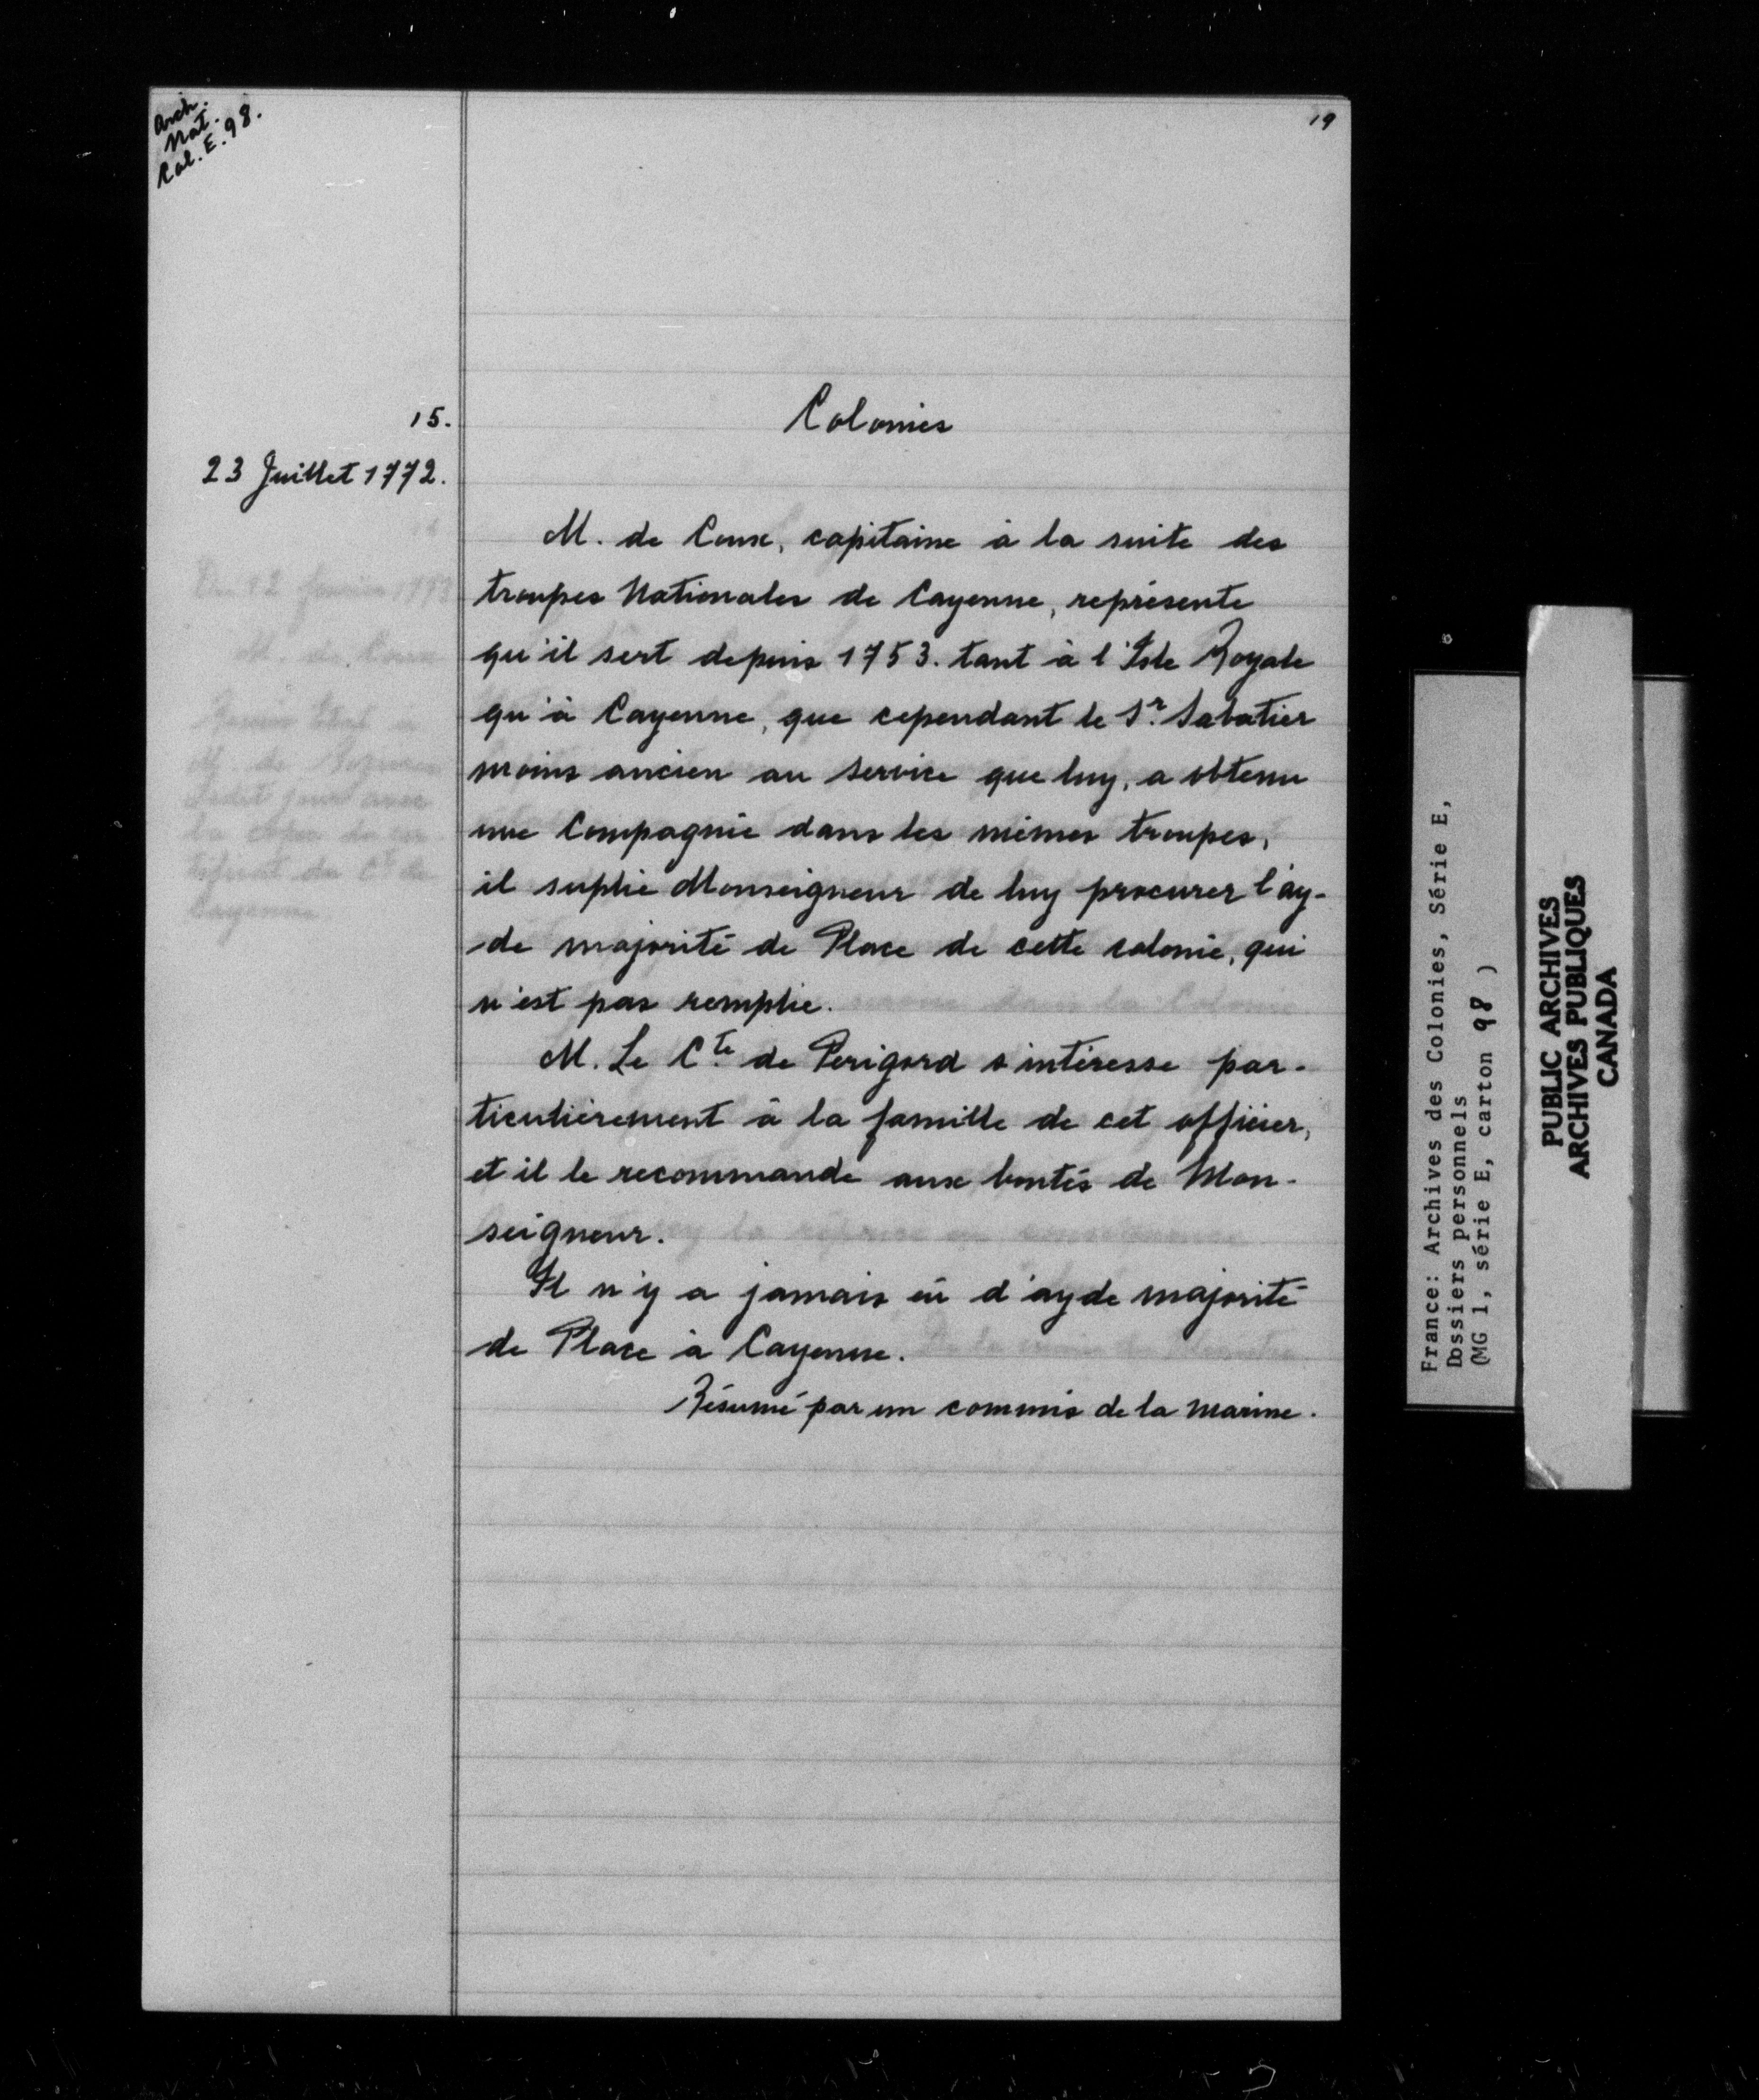 Arch.
Nat.
Col. E. 98.
19
15.
23 Juillet 1772.
Colonies
M. de Coux, capitaine à la suite des
troupes Nationales de Cayenne, représente
qu'il sert depuis 1753. tant à l'Isle Royale
qu'à Cayenne, que cependant le Sr. Sabatier
moins ancien au service que luy, a obtenu
une Compagnie dans les mêmes troupes,
il suplie Monseigneur de luy procurer l'ay-
de majorité de Place de cette colonie, qui
n'est pas remplie.
M. Le Cte. de Perigord s'intéresse par-
ticulièrement à la famille de cet officier,
et il le recommande aux bontés de Mon-
seigneur.
Il n'y a jamais eû d'ayde majorité
de Place à Cayenne.
Résumé par un commis de la marine.
France: Archives des Colonies, Série E,
Dossiers personnels
(MG 1, série E, carton 98 )
PUBLIC ARCHIVES
ARCHIVES PUBLIQUES
CANADA